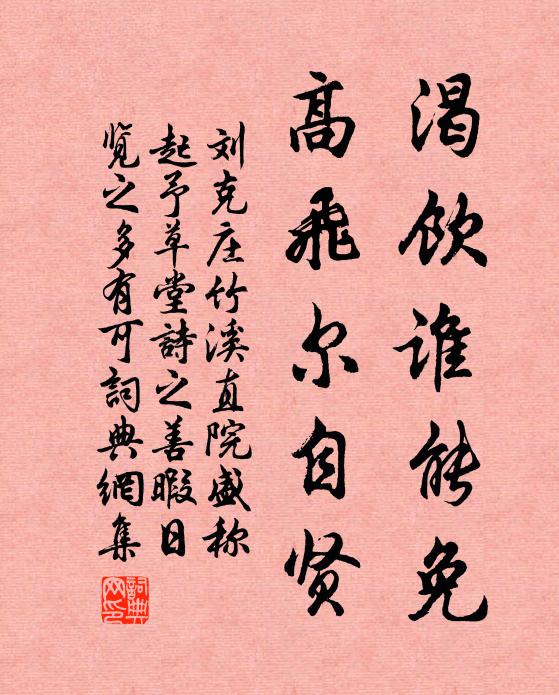 渴饮谁能免
高飛尔自贤
刘克庄竹溪直院盛称
起予草堂詩之善暇日
览之多有可詞典網集
詞典網印